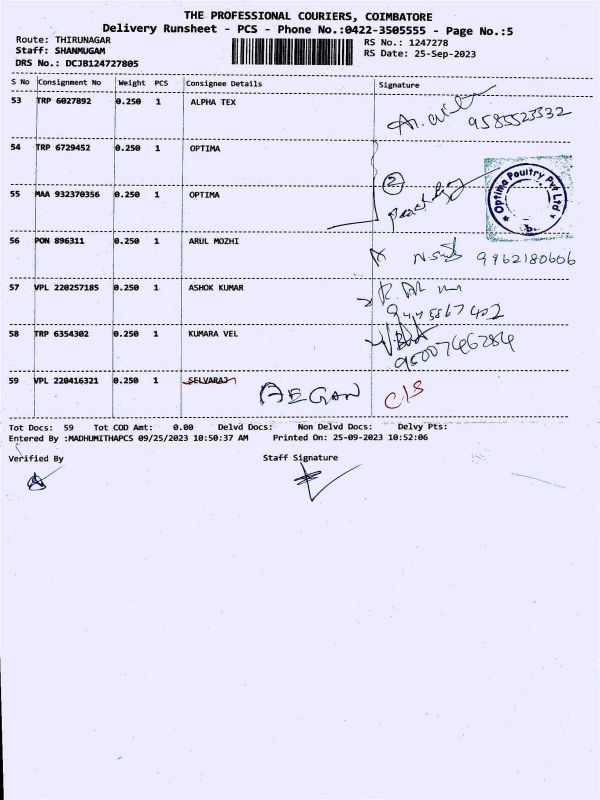 THE PROFESSIONAL COURIERS, COIMBATORE
Delivery Runsheet - PCS - Phone No.:0422-3505555 - Page No.:5
Route: THIRUNAGAR
Staff: SHANMUGAM
DRS No.: DCJB124727805
RS No.: 1247278
RS Date: 25-Sep-2023
S No Consignment No Weight PCS Consignee Details Signature
53 TRP 6027892 0.250 1 ALPHA TEX
9585523332
54 TRP 6729452 0.250 1 OPTIMA
2
Optima Poultry Pvt Ltd
55 MAA 932370356 0.250 1 OPTIMA
56 PON 896311 0.250 1 ARUL MOZHI 9962180606
57 VPL 220257185 0.250 1 ASHOK KUMAR
58 TRP 6354302 0.250 1 KUMARA VEL
59 VPL 220416321 0.250 1 SELVARAJ AEGAN C/S
Tot Docs: 59 Tot COD Amt: 0.00 Delvd Docs: Non Delvd Docs: Delvy Pts:
Entered By :MADHUMITHAPCS 09/25/2023 10:50:37 AM Printed On: 25-09-2023 10:52:06
Verified By Staff Signature